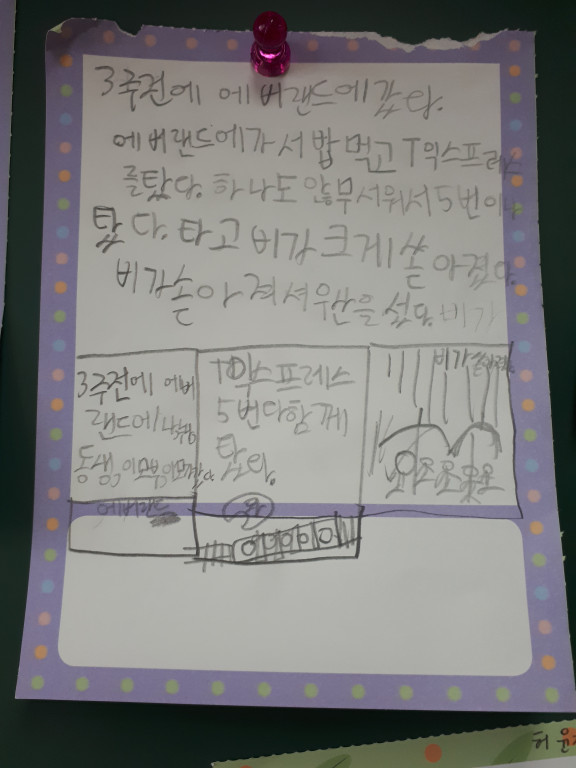 3주전에 에버랜드에갔다.
에버랜드에가서 밥 먹고 T익스프레스
를탔다. 하나도 않무서워서 5번이나
탔다. 타고 비가 크게 쏟아졌다.
비가쏟아져서우산을 썼다. 비가
3주전에 에버
랜드에 나
동생, 이모부, 이모
T익스프레스
5번다함께
탔다.
비가
에버랜드
와
허 윤